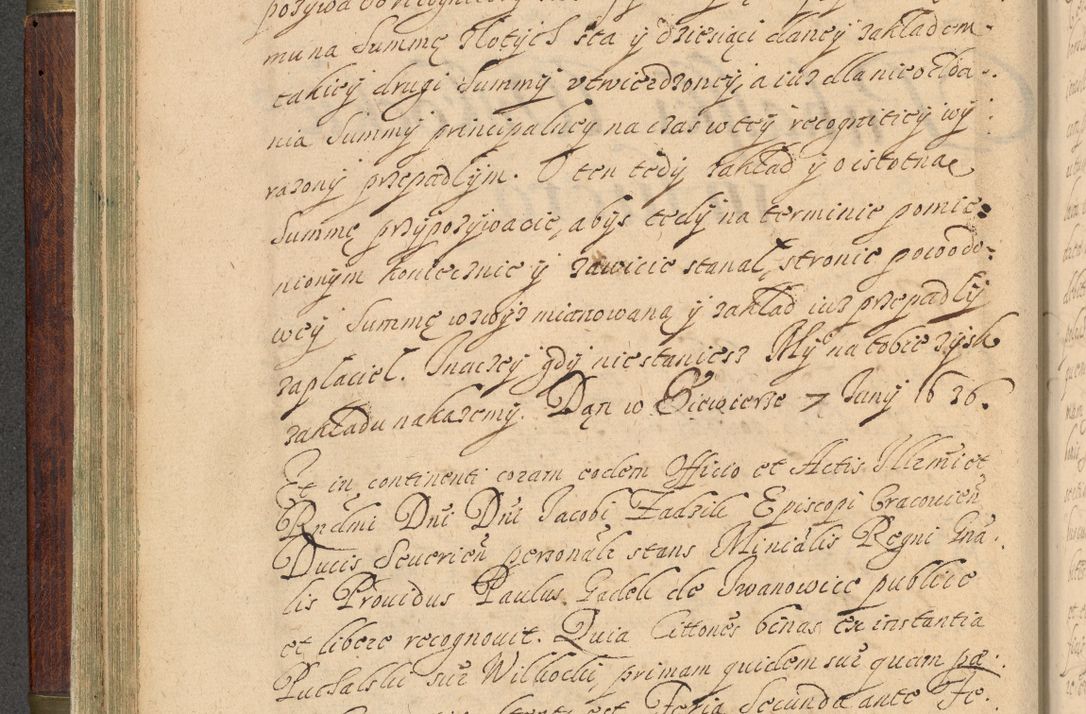 muna Summę złotych sta y dziesiąci daney zakładem
takiey drugi Summy vtwierdzoney, a iuż dla nie odda-
nia Summy principalney na czas w tey recognitiey wy-
razony przepadłym. O ten tedy zakład y o istotnae
Summę przypozywacie, abys tedy na terminie pomie-
nionym koniecznie y zawicie stanął, stronie powodo-
wey Summę wzwyz mianowaną y zakład iuz przepadły
zapłaciel. Inaczey gdy niestaniesz My na tobie zysk
zakładu nakażemy. Dan w Siewierze 7 Iuny 1636.
Et in continenti coram eodem Officio et Actis Illrmi et
Rndmi Dni Dni Jacobi Zadzik Episcopi Cracouien
Ducis Seuerien personale stans Minialis Regni Gna-
lis Prouidus Paulus Gadek de Iwanowice publice
et libere recognouit. Quia Cittones binas ex instantia
Puchalski sur Wilkocki, primam quidem sur quam pa-
est Feria Secunda ante Fe-